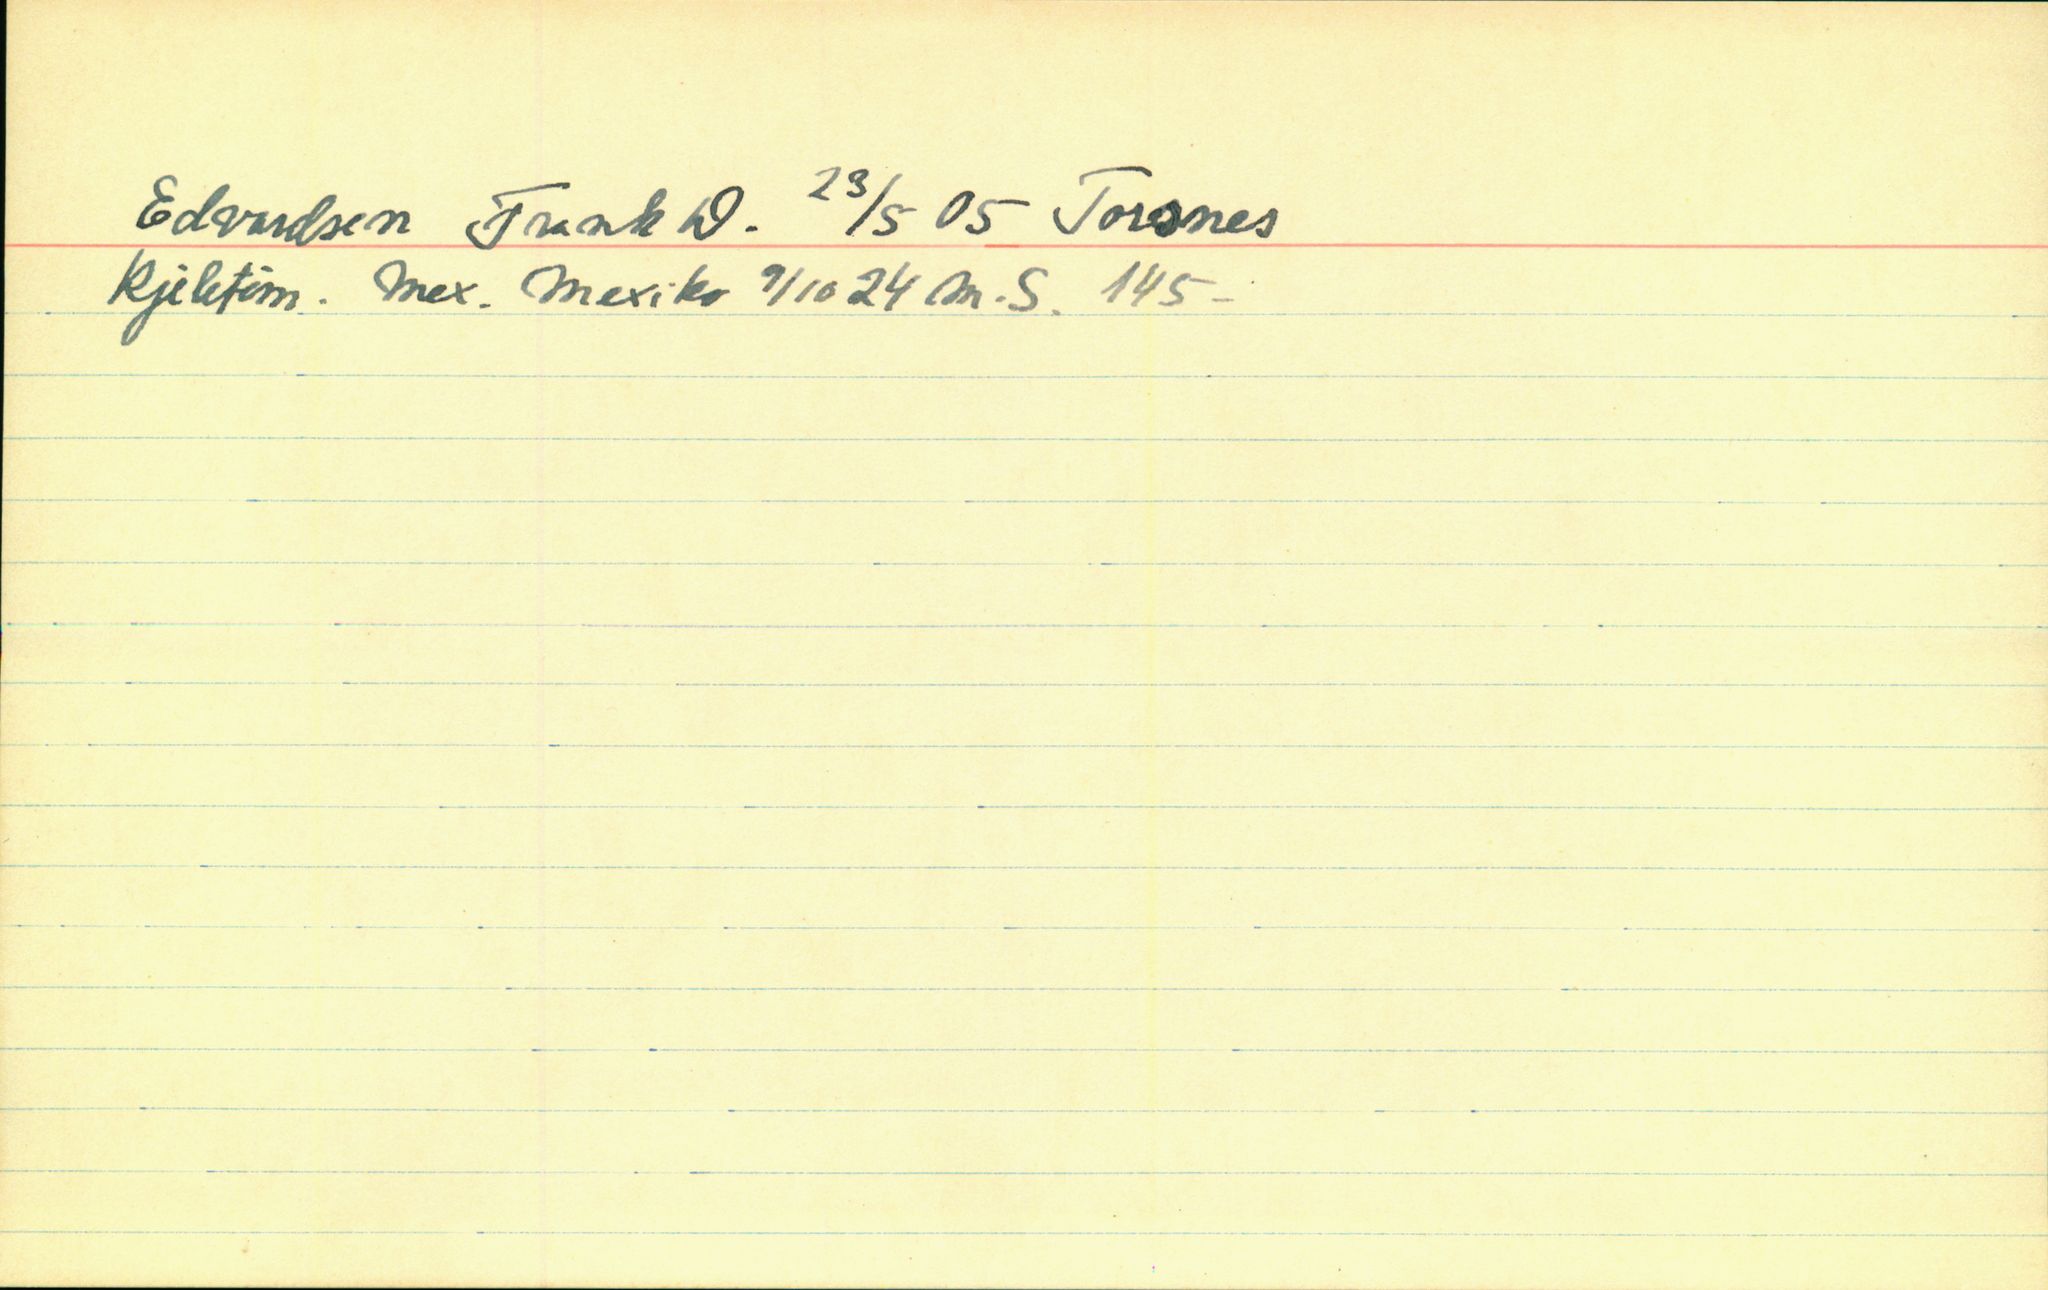 Edvardsen Frank W. 23/5 05 Torsnes
Mex. Mexiko 9/10 24 M.S. 145-